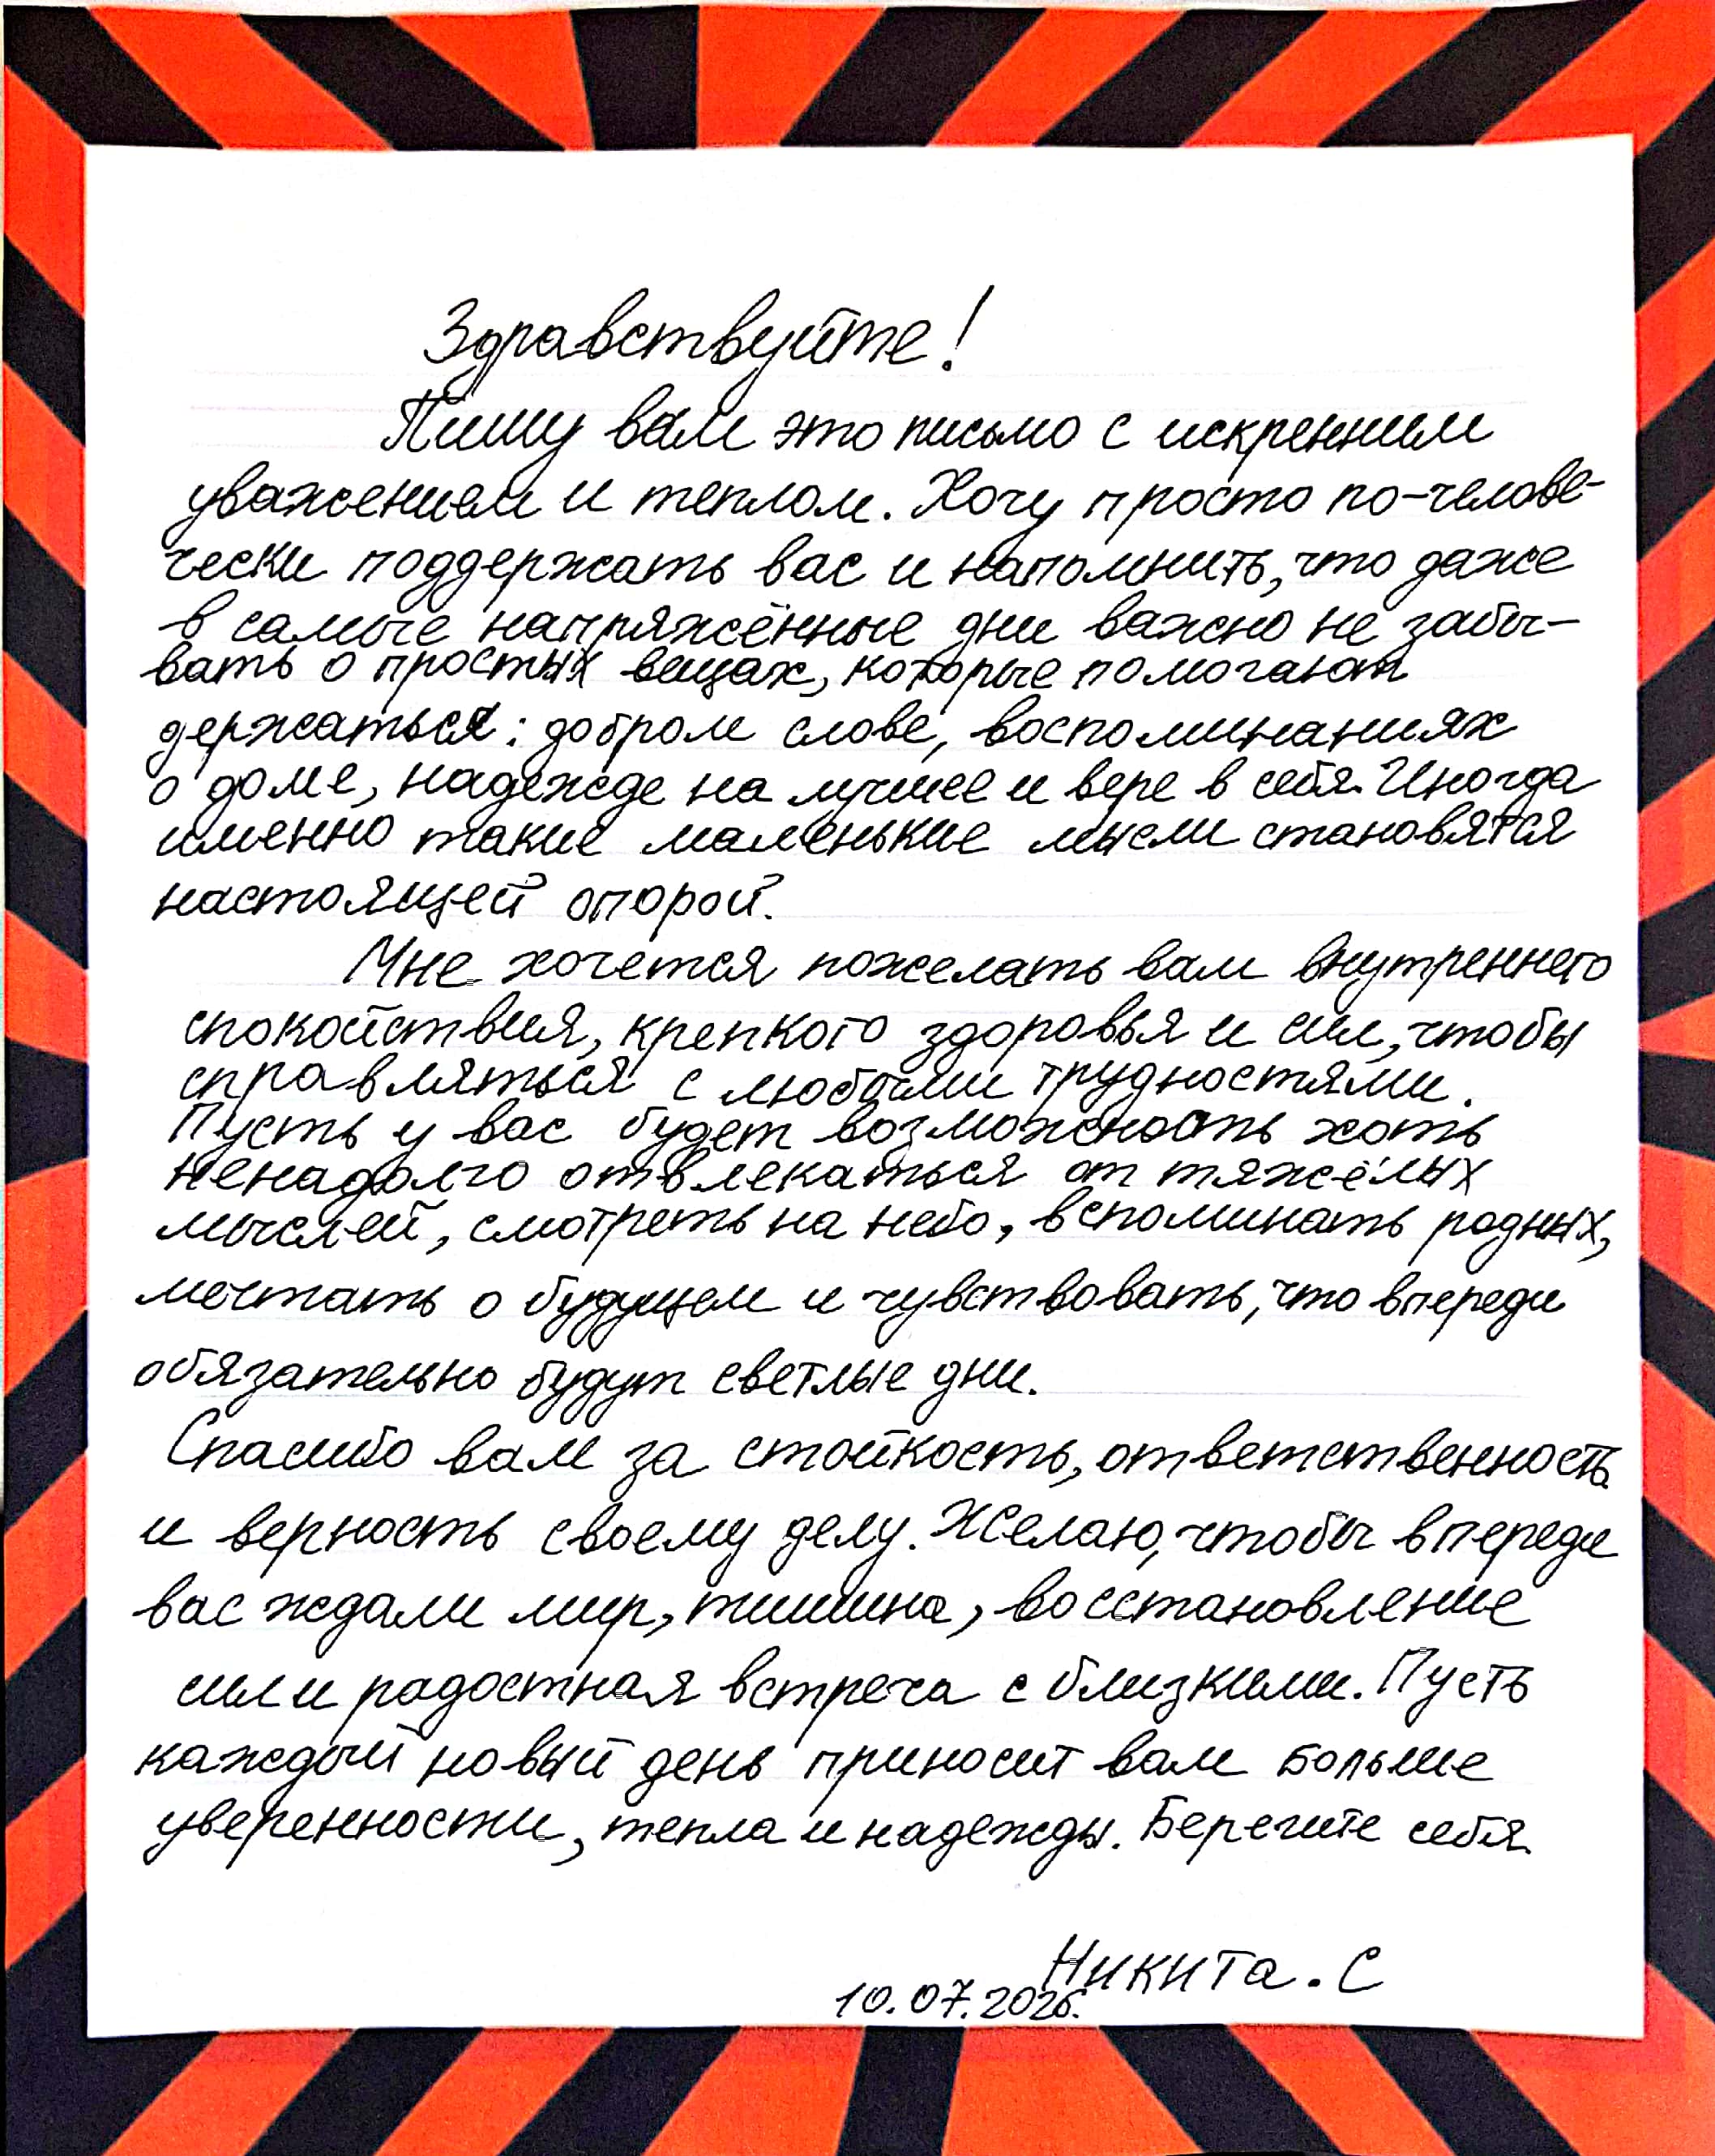 Здравствуйте!
Пишу вам это письмо с искренним
уважением и теплом. Хочу просто по-челове-
чески поддержать вас и напомнить, что даже
в самые напряжённые дни важно не забы-
вать о простых вещах, которые помогают
держаться: добром слове, воспоминаниях
о доме, надежде на лучшее и вере в себя. Иногда
именно такие маленькие мысли становятся
настоящей опорой.
Мне хочется пожелать вам внутреннего
спокойствия, крепкого здоровья и сил, чтобы
справляться с любыми трудностями.
Пусть у вас будет возможность хоть
ненадолго отвлекаться от тяжёлых
мыслей, смотреть на небо, вспоминать родных,
мечтать о будущем и чувствовать, что впереди
обязательно будут светлые дни.
Спасибо вам за стойкость, ответственность
и верность своему делу. Желаю, чтобы впереди
вас ждали мир, тишина, восстановление
сил и радостная встреча с близкими. Пусть
каждый новый день приносит вам больше
уверенности, тепла и надежды. Берегите себя.
Никита. С
10.07.2026.